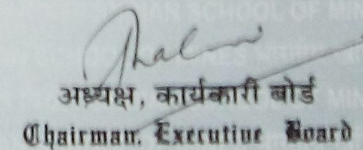 अध्यक्ष, कार्यकारी बोर्ड
Chairman, Executive Board